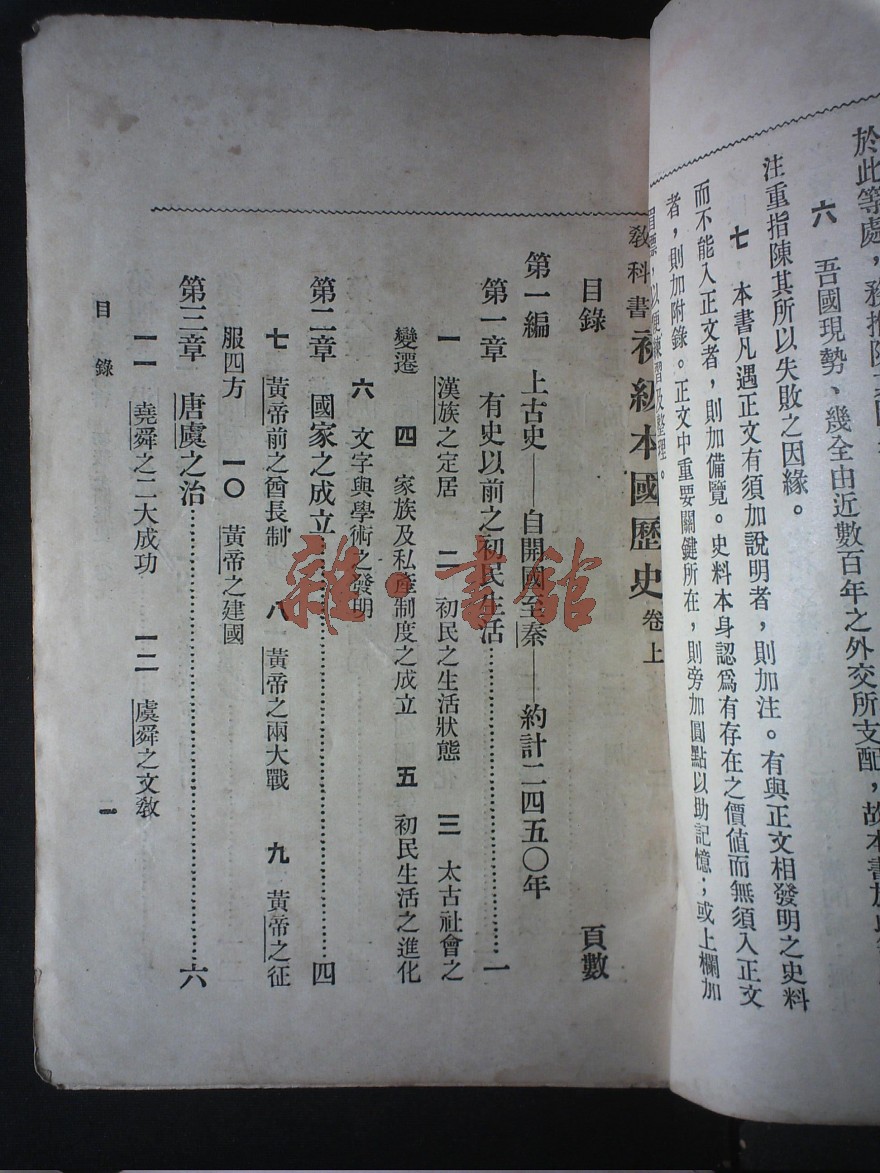 於此等處，務推陳
六　吾國現勢、幾全由近數百年之外交所支配，故本書於
注重指陳其所以失敗之因緣。
七　本書凡遇正文有須加說明者，則加注。有與正文相發明之史料
而不能入正文者，則加備覽。史料本身認爲有存在之價值而無須入正文
者，則加附錄。正文中重要關鍵所在，則旁加圓點以助記憶；或上欄加
眉標，以便練習及整理。
教科書初級本國歷史卷上
目錄　頁數
第一編　上古史——自開國至秦——約計二四五〇年
第一章　有史以前之初民生活……一
一　漢族之定居　二　初民之生活狀態　三　太古社會之
變遷　四　家族及私產制度之成立　五　初民生活之進化
六　文字與學術之發明
第二章　國家之成立……四
七　黃帝前之酋長制　八　黃帝之兩大戰　九　黃帝之征
服四方　一〇　黃帝之建國
第三章　唐虞之治……六
一一　堯舜之二大成功　一二　虞舜之文教
目錄　一
雜·書館